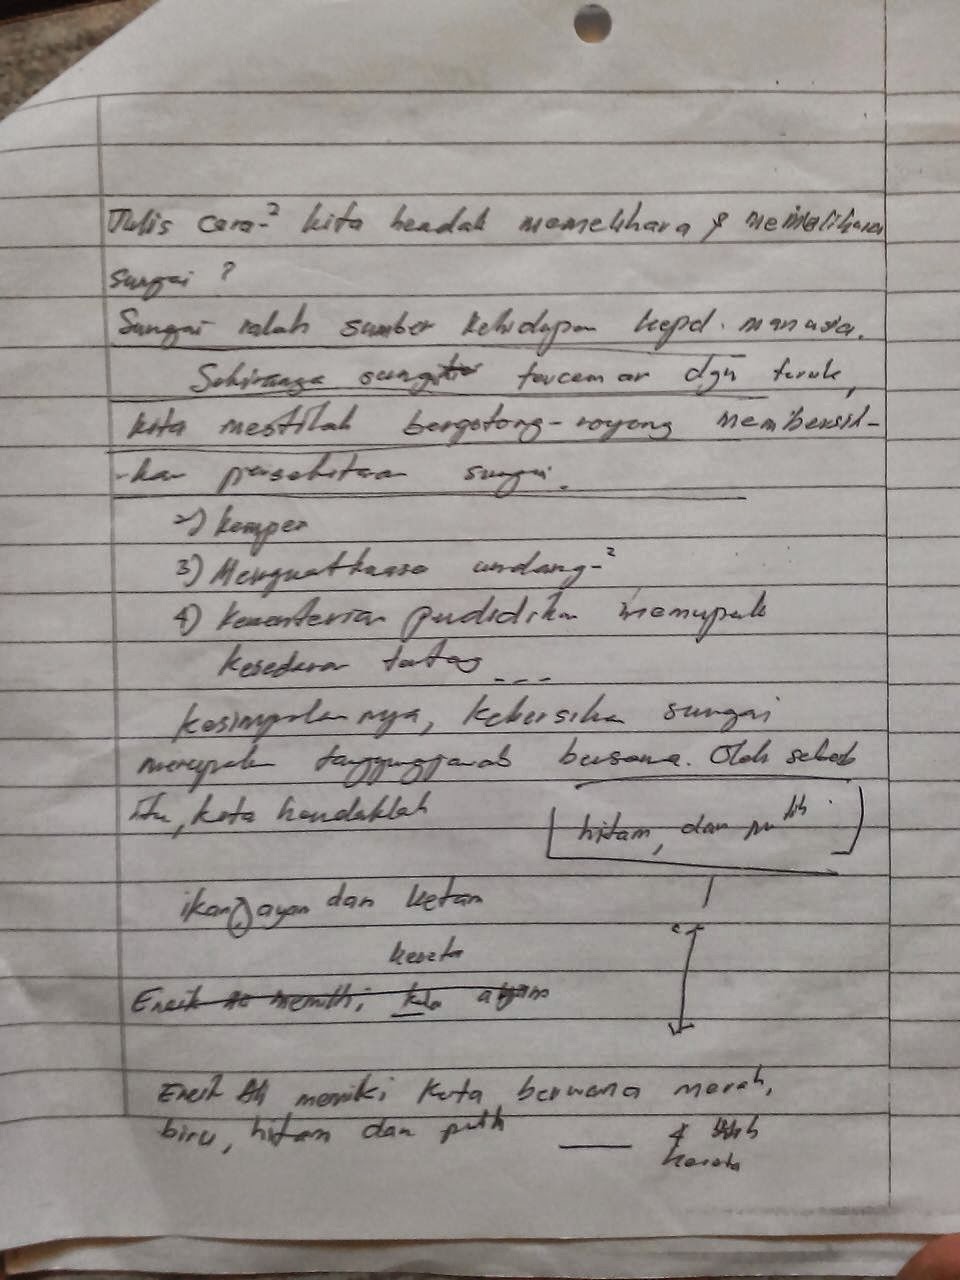 Tulis cara-² kita hendak memelihara & memelihara
sungai ?
Sungai ialah sumber kehidupan kepd. manusia.
Sekiranya sungai tercemar dgn teruk,
kita mestilah bergotong-royong membersih-
-kan persekitaran sungai.
2) Kempen
3)
undang-²
4) Kementerian pendidikan memupuk
kesedaran tentang ----
Kesimpulannya, kebersihan sungai
merupakan tanggungjawab bersama. Oleh sebab
itu, kita hendaklah
[hitam, dan putih.]
ikan, ayam dan ketam
kereta
Encik memiliki ayam
Encik Ali memiliki berwarna merah,
biru, hitam dan putih ___ 4
kereta